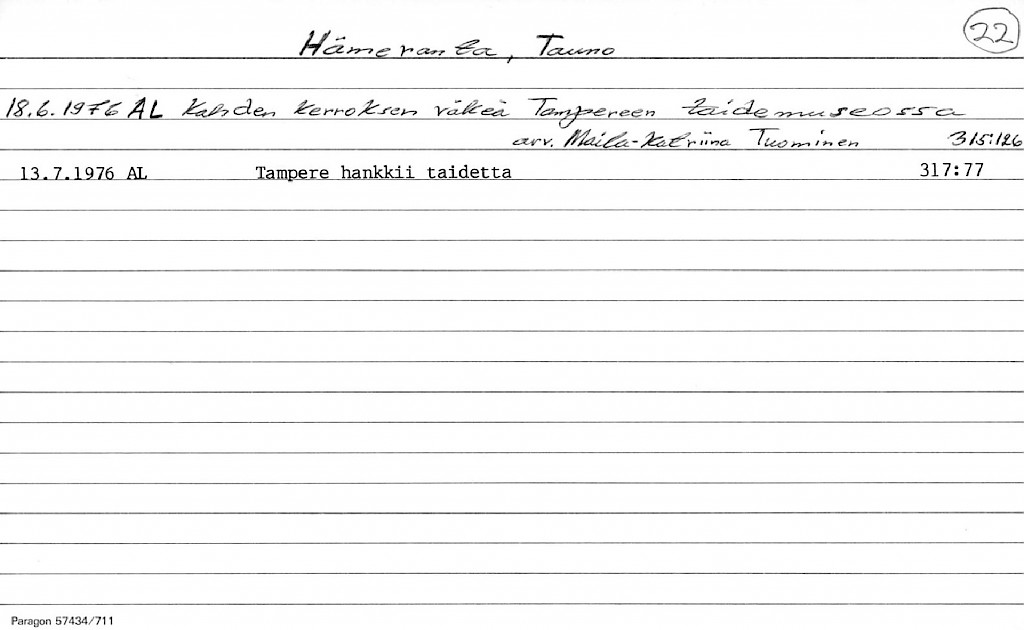 Hämeranta, Tauno
22
18.6.1976 AL Kahden kerroksen väkeä Tampereen taidemuseossa
arv. Maila-Katriina Tuominen 315:126
13.7.1976 AL Tampere hankkii taidetta 317:77
Paragon 57434/711